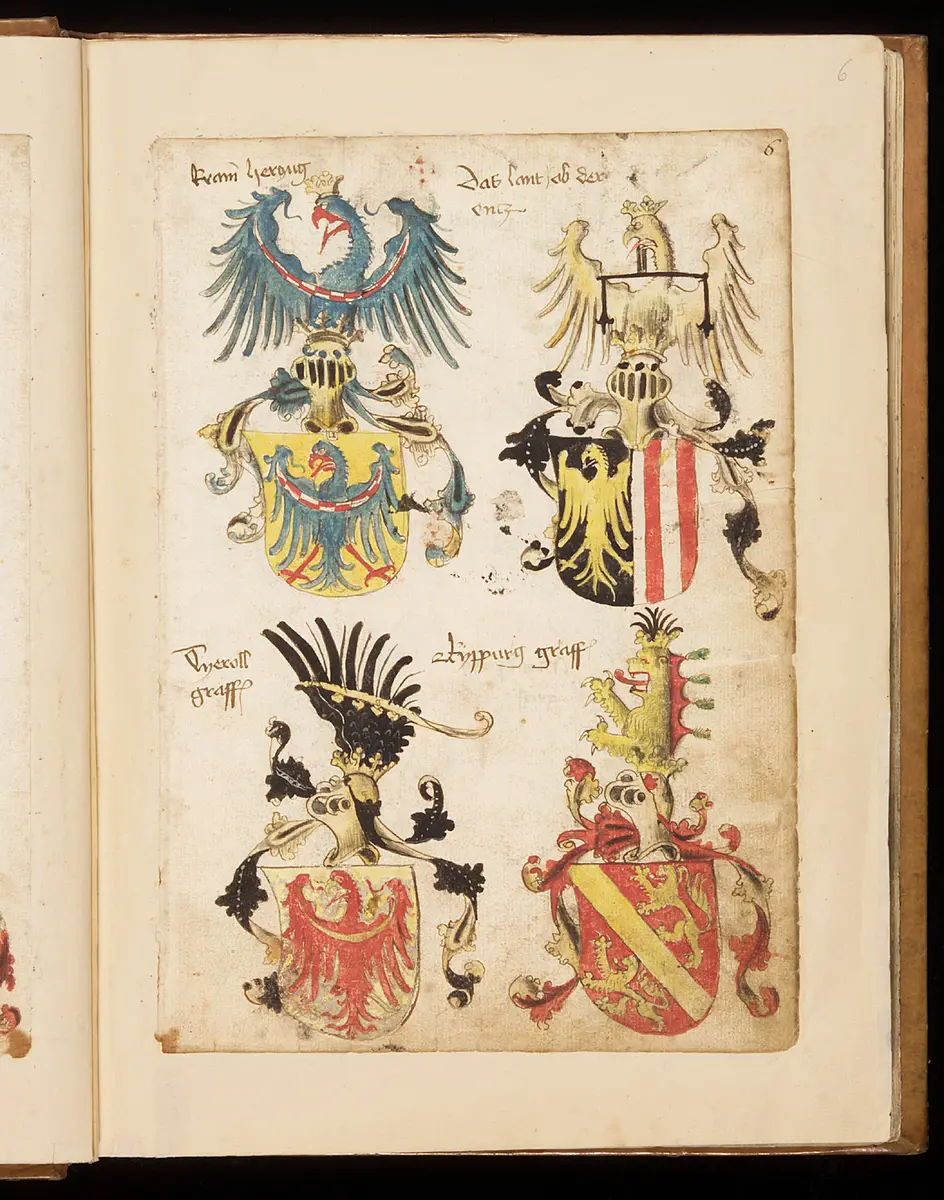 6
6
Krain hertzug
Das lant ob der
entz
Tyeroll
graff
Kyppurg graff